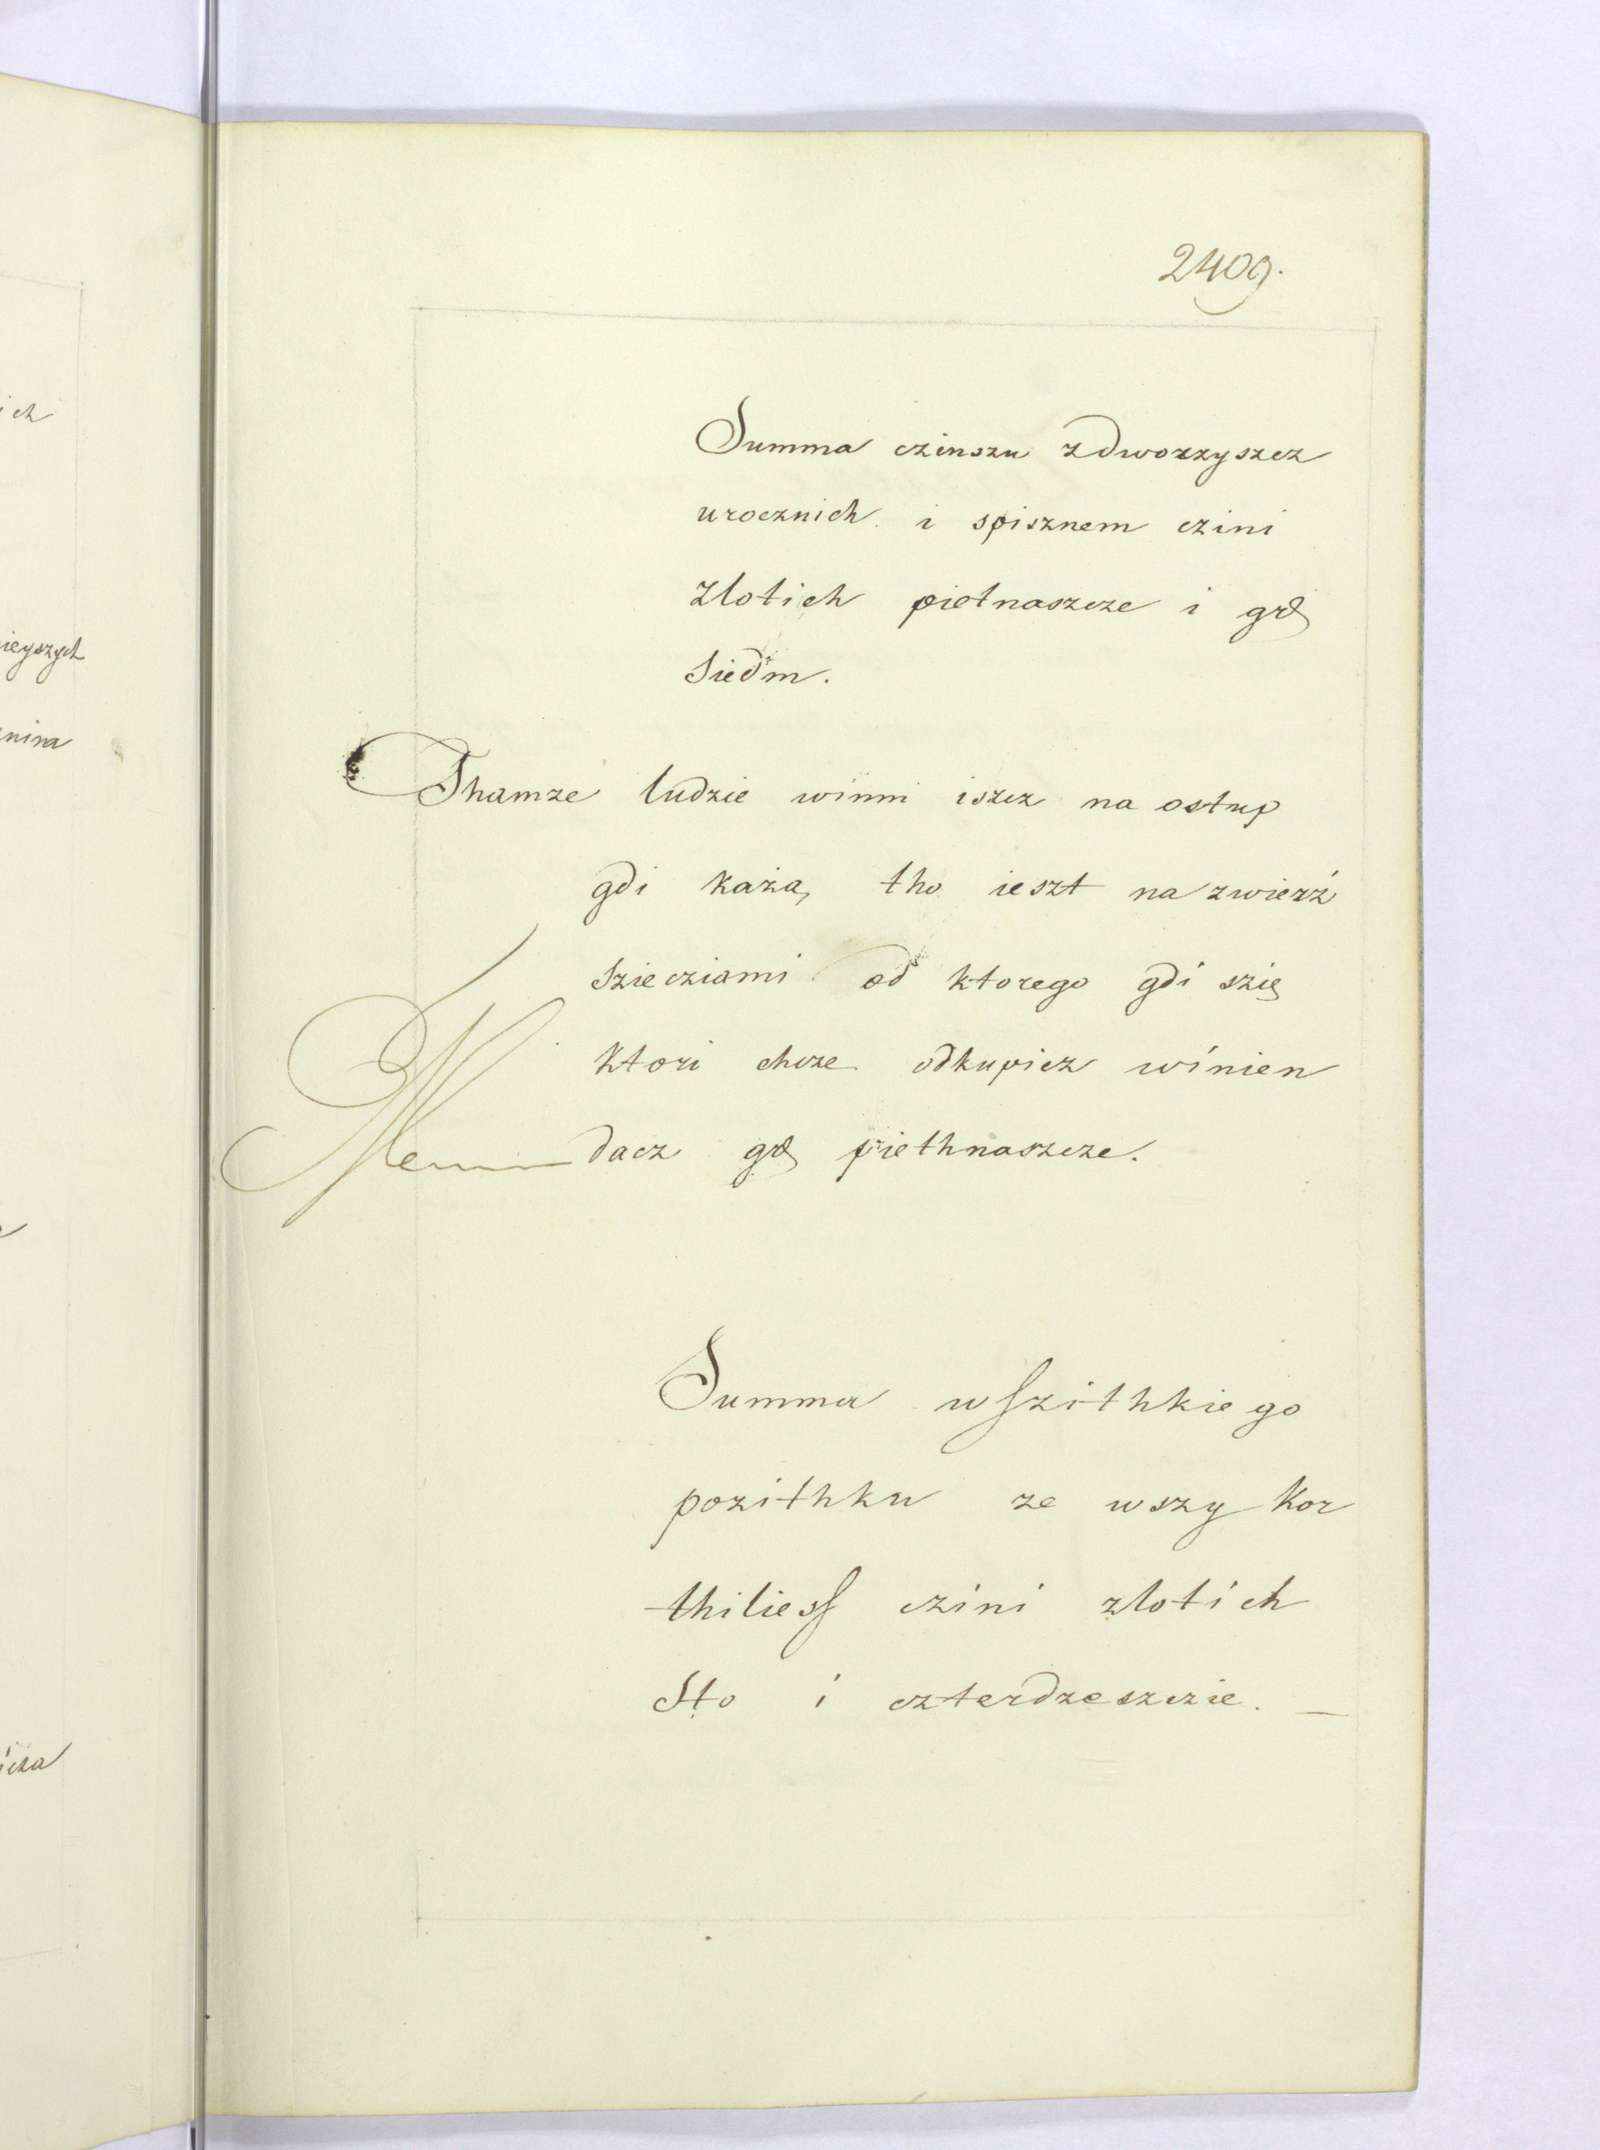 2409.
Summa czinszu zdworzyszcz
urocznich i spisznem czini
Zlotich pietnaszcze i gr
Siedm.
Thamze ludzie winni iszcz na ostup
gdi każą tho ieszt na zwierź
sziecziami od ktorego gdi szię
ktori chcze odkupicz winien
dacz gr piethnaszcze.
Summa wszithkiego
pozithku ze wszy Kor
thiliess czini zlotich
Sto i czterdzeszczie. —
ich
ieyszych
nina
icza